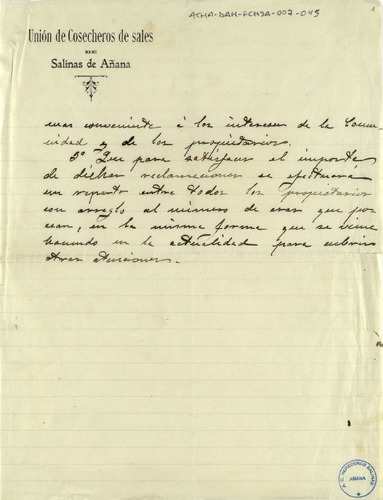 ACHA-DAH-FCHSA-007-045
1
Unión de Cosecheros de sales
DE
Salinas de Añana
mas conveniente á los intereses de la Comu-
nidad y de los propietarios.
3º Que para satisfacer el importe
de dichas reclamaciones se efectuará
un reparto entre todos los propietarios
con arreglo al número de eras que pos
ean, en la misma forma que se viene
haciendo en la actualidad para cubrir
otras atenciones.
AÑANA